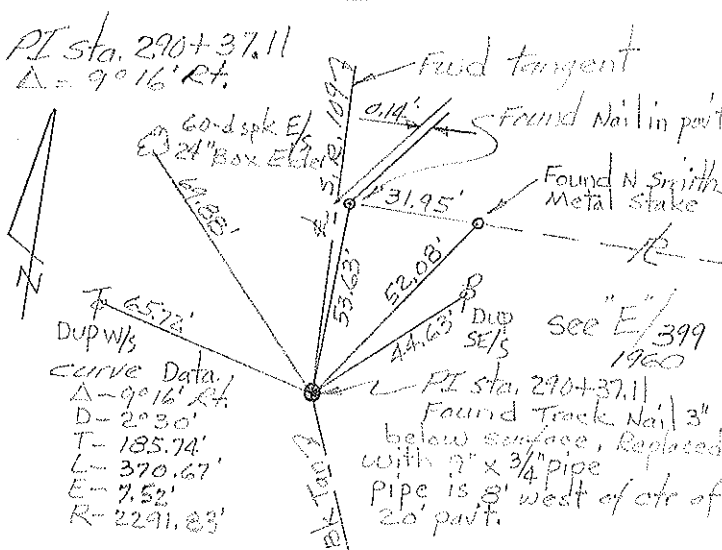 PI sta. 290+37.11
Δ - 9°16' Rt.
Fwd tangent
0.14'
Found Nail in pav't
60-d spk E/s
24" Box Elder
S.R. 109
69.88'
31.95'
Found N. Smith
Metal Stake
53.63'
52.08'
44.63'
65.72'
N
DUP W/s
DUP
SE/s
see "E"/399
1960
curve Data
Δ - 9°16' Rt.
D - 2°30'
T - 185.74'
L - 370.67'
E - 7.52'
R - 2291.83'
PI sta. 290+37.11
Found Track Nail 3"
below surface, Replaced
with 9" x 3/4" pipe
pipe is 8' west of ctr of
20' pav't.
Bk Tan